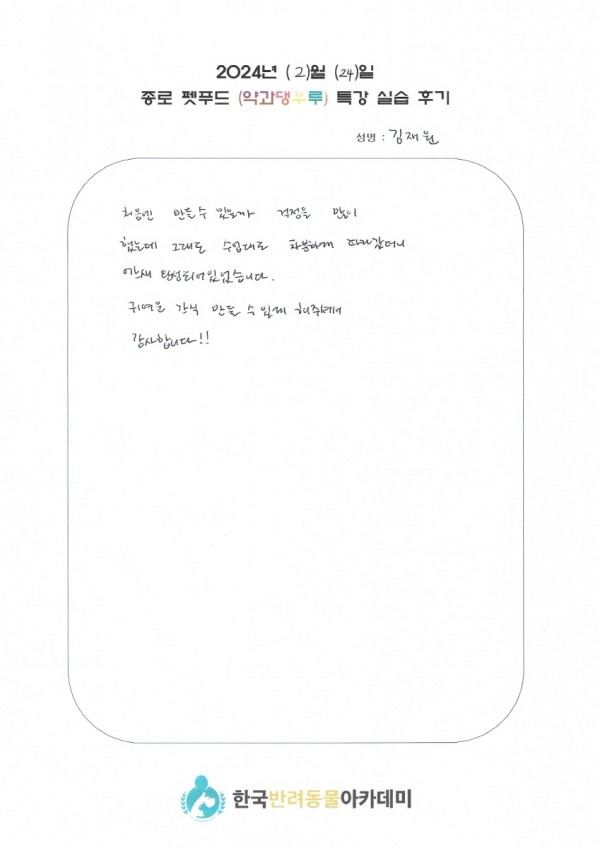 2024년 (2)월 (24)일
종로 펫푸드 (약과댕후루) 특강 실습 후기
성명 : 김재원
처음엔 만들수 있을까 걱정을 많이
했는데 그래도 수업대로 차분하게 따라갔더니
어느새 완성되어있었습니다.
귀여운 간식 만들 수 있게 해주셔서
감사합니다!!
한국반려동물아카데미